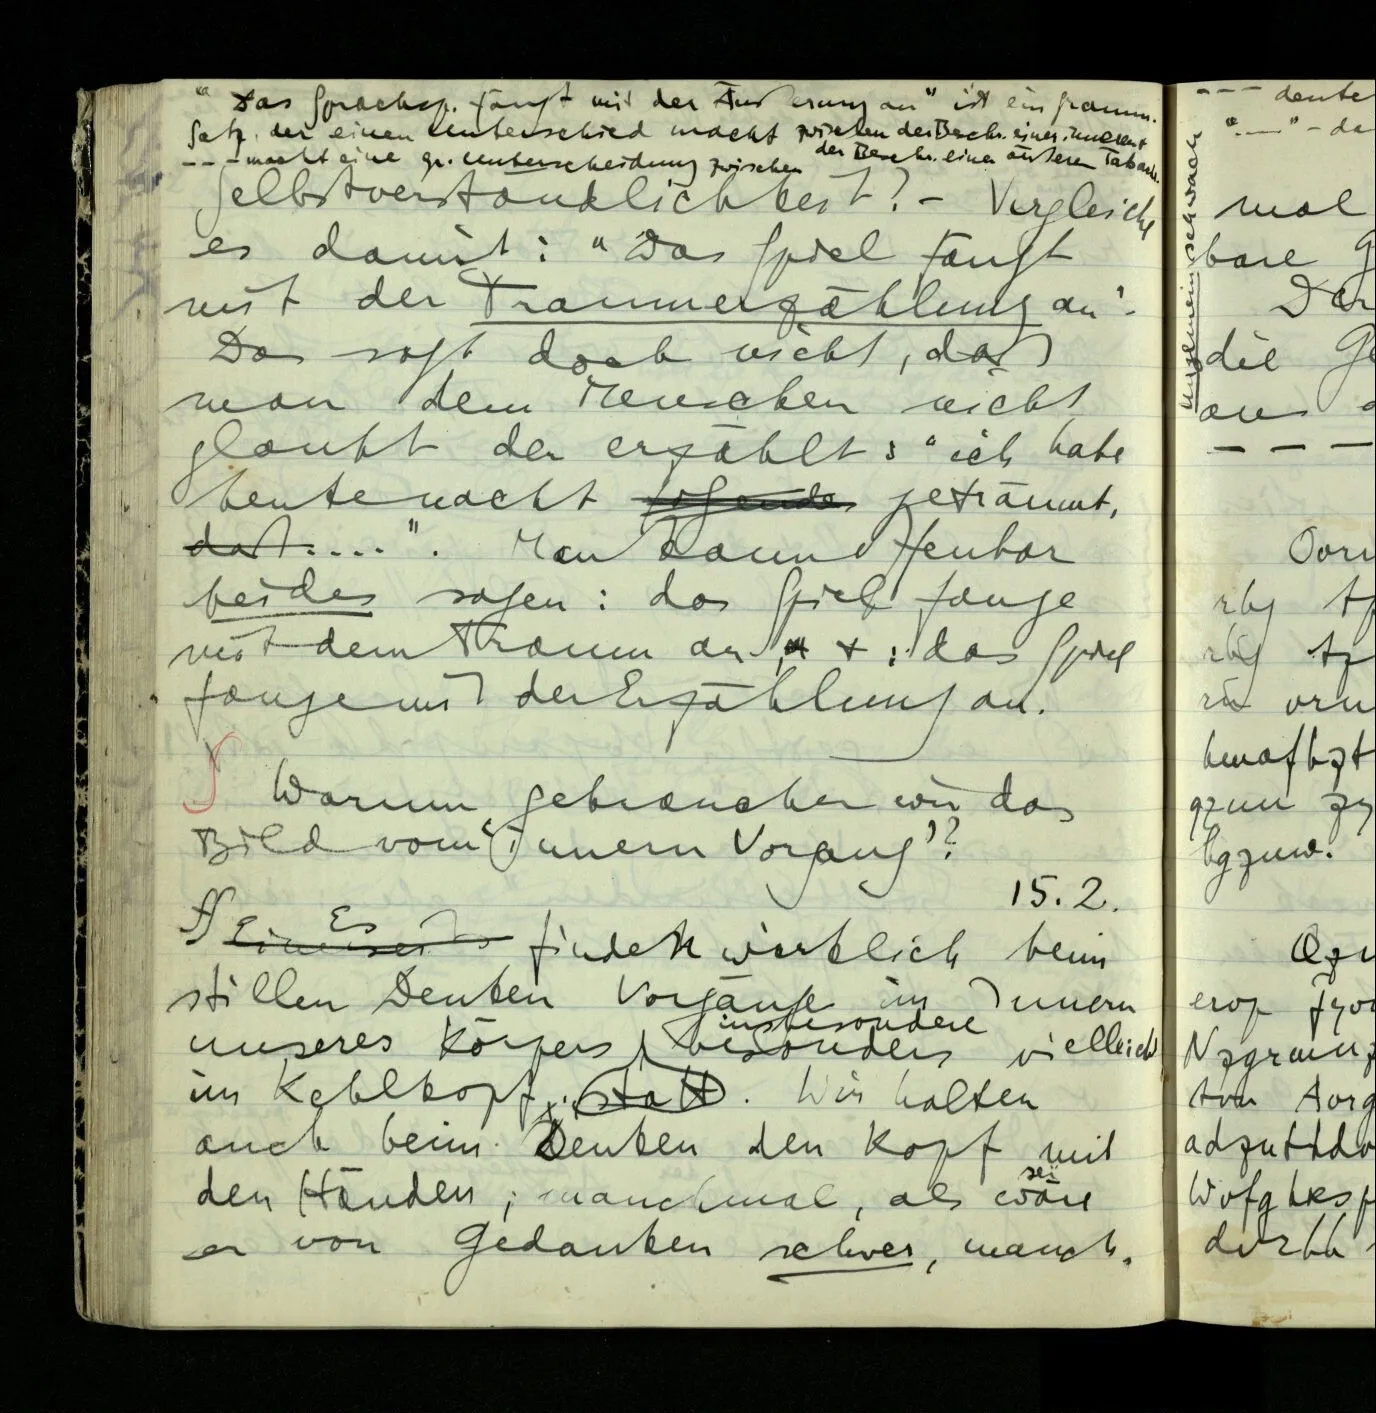 "Das Sprachsp. fängt mit der Äußerung an" ist ein gramm.
Satz, der einen Unterschied macht zwischen der Beschr. eines inneren &
--- macht eine gr. Unterscheidung zwischen der Beschr. einer äußeren Tatsache.
Selbstverständlichkeit? – Vergleiche
es damit: "Das Spiel fängt
mit der Traumerzählung an".
Das sagt doch nicht, daß
man dem Menschen nicht
glaubt der erzählt: "ich habe
heute nacht folgendes geträumt,
daß....". Man kann offenbar
beides sagen: das Spiel fange
mit dem Traum an, & + : das Spiel
fange mit der Erzählung an.
∫ Warum gebrauchen wir das
Bild vom 'innern Vorgang'?
15.2.
Es
finden wirklich beim
stillen Denken Vorgänge im Innern
insbesondere
unseres Körpers, besonders vielleicht
im Kehlkopf, statt. Wir halten
auch beim Denken den Kopf mit
sei
den Händen; manchmal, als wäre
er von Gedanken schwer, manch-
--- deutet
" —— " – da
ungemein schwach
mal
bare G
Dar
die Ge
aus d
– – –
Oorn
rbg
rbg
rn orn
hmofhzt
gznn zy
hgznw.
Ozn
erop fzo
Nzgrmnz
tvn Aorg
adzuthdo
Wofghks